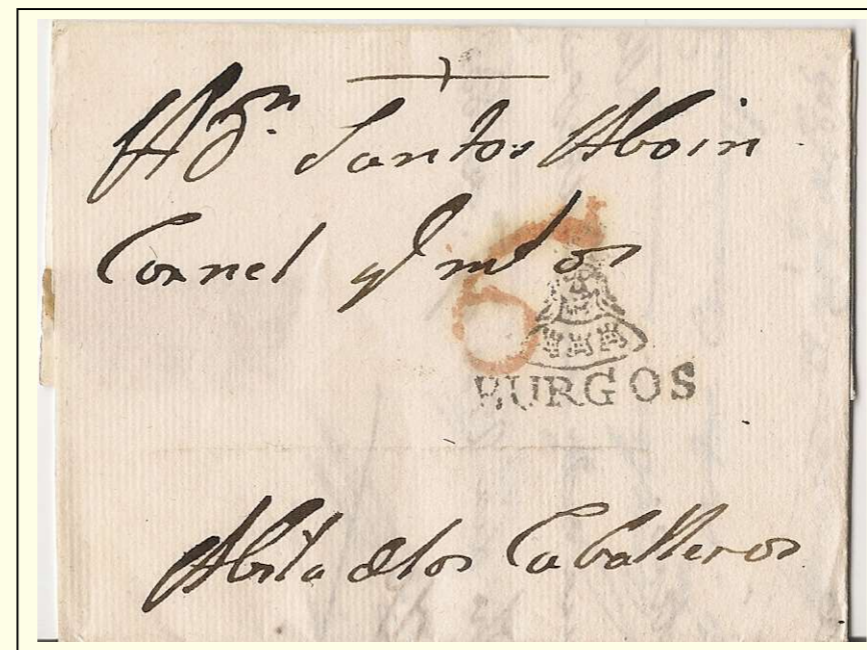 A Dn Santos Aboin
Coronel y
6
BURGOS
Abila de los Caballeros